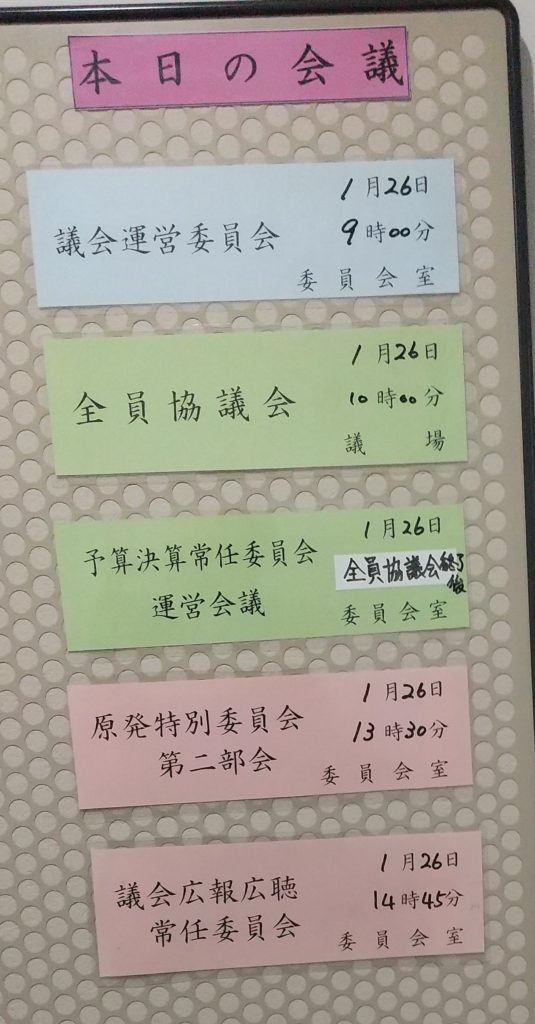 本日の会議
1月26日
議会運営委員会
9時00分
委員会室
1月26日
全員協議会
10時00分
議場
1月26日
予算決算常任委員会
運営会議
全員協議会終了後
委員会室
1月26日
原発特別委員会
第二部会
13時30分
委員会室
1月26日
議会広報広聴
常任委員会
14時45分
委員会室